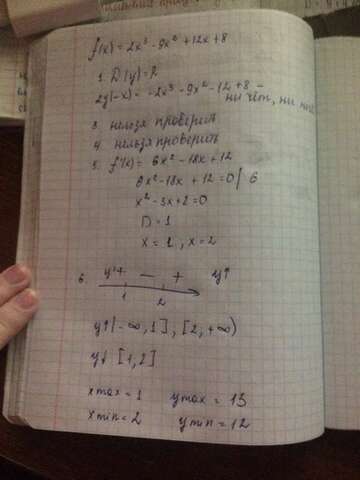 f(x) = 2x³ - 9x² + 12x + 8
1. D(y) = R
2 y(-x) = -2x³ - 9x² - 12 + 8 -
ни чёт, ни
3. нельзя проверить
4. нельзя проверить
5. f'(x) = 6x² - 18x + 12
6x² - 18x + 12 = 0 / 6
x² - 3x + 2 = 0
D = 1
x = 1, x = 2
6. y' + - + y↑
1 2
y↑(-∞, 1], [2, +∞)
y↓ [1, 2]
xmax = 1 ymax = 13
xmin = 2 ymin = 12